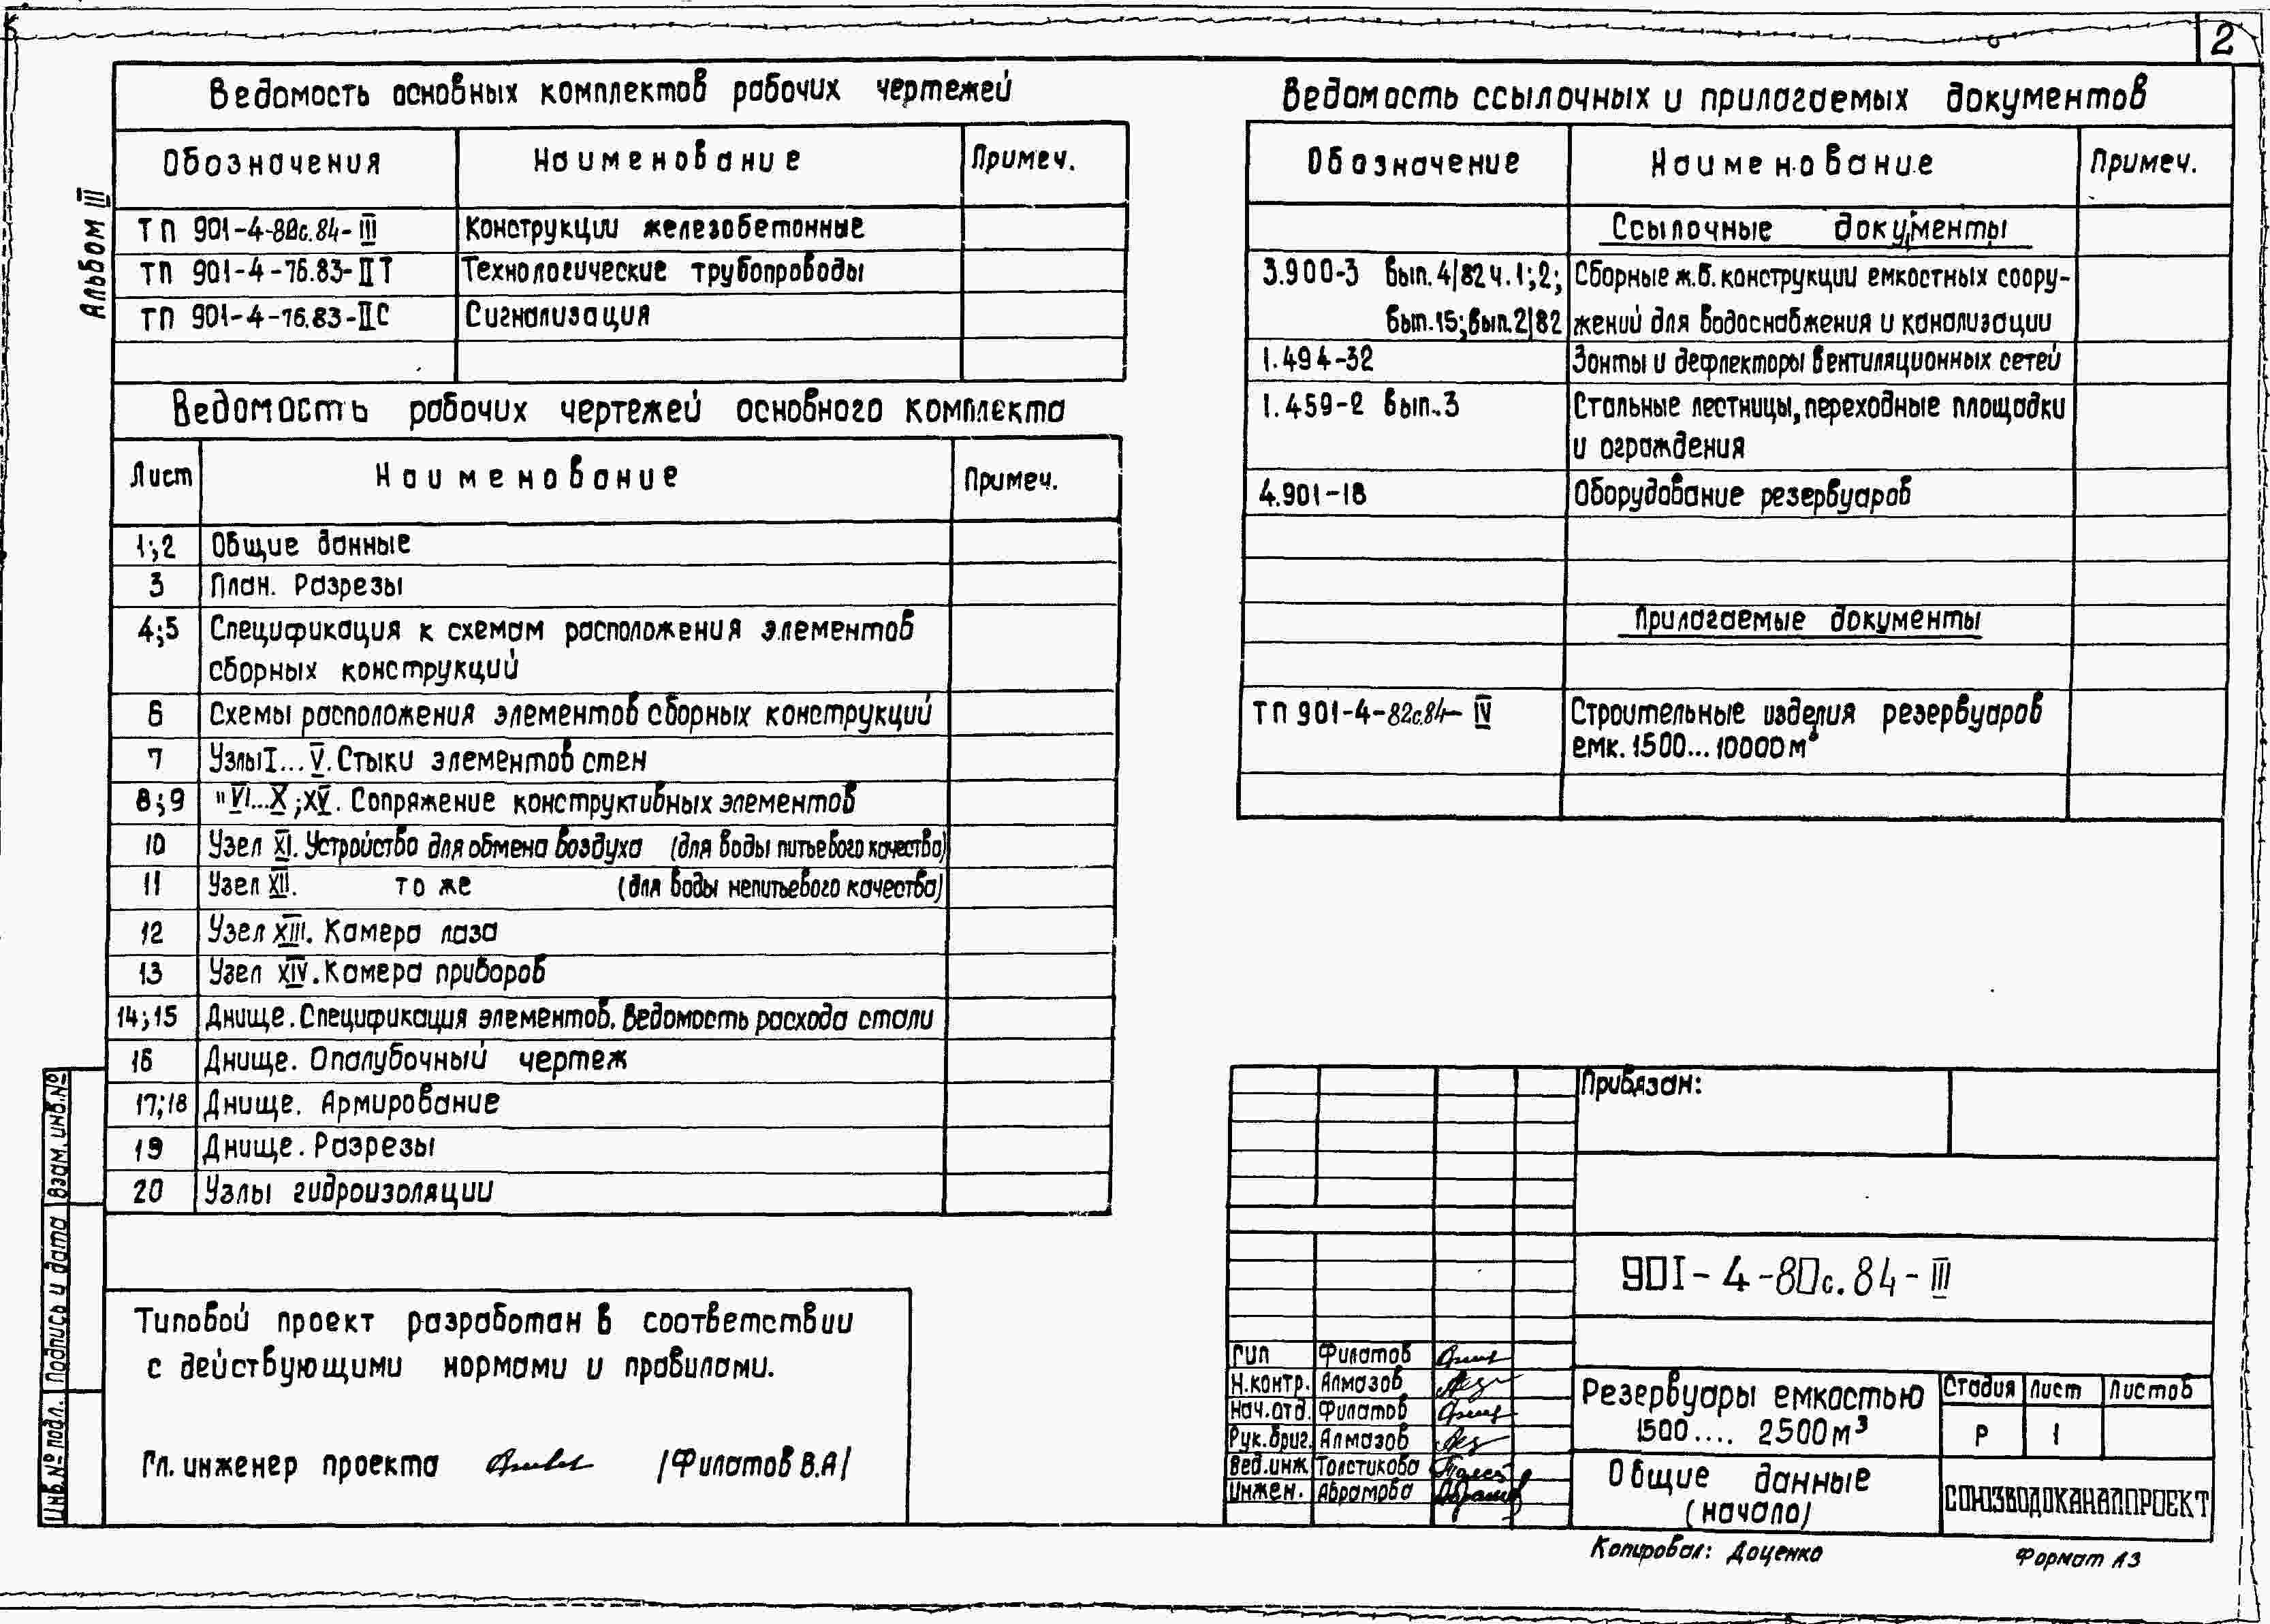 2
Альбом III
Ведомость основных комплектов рабочих чертежей
Обозначения Наименование Примеч.
ТП 901-4-80с.84-III Конструкции железобетонные
ТП 901-4-76.83-IIТ Технологические трубопроводы
ТП 901-4-76.83-IIС Сигнализация
Ведомость рабочих чертежей основного комплекта
Лист Наименование Примеч.
1;2 Общие данные
3 План. Разрезы
4;5 Спецификация к схемам расположения элементов
сборных конструкций
6 Схемы расположения элементов сборных конструкций
7 Узлы I...V. Стыки элементов стен
8;9 " VI...X; XV. Сопряжение конструктивных элементов
10 Узел XI. Устройство для обмена воздуха (для воды питьевого качества)
11 Узел XII. то же (для воды непитьевого качества)
12 Узел XIII. Камера лаза
13 Узел XIV. Камера приборов
14;15 Днище. Спецификация элементов. Ведомость расхода стали
16 Днище. Опалубочный чертеж
17;18 Днище. Армирование
19 Днище. Разрезы
20 Узлы гидроизоляции
Типовой проект разработан в соответствии
с действующими нормами и правилами.
Гл. инженер проекта /Филатов В.А/
Инв.№ подл. Подпись и дата Взам.инв.№
Ведомость ссылочных и прилагаемых документов
Обозначение Наименование Примеч.
Ссылочные документы
3.900-3 вып.4/82 ч.1;2; Сборные ж.б. конструкции емкостных соору-
вып.15; вып.2/82 жений для водоснабжения и канализации
1.494-32 Зонты и дефлекторы вентиляционных сетей
1.459-2 вып.3 Стальные лестницы, переходные площадки
и ограждения
4.901-18 Оборудование резервуаров
Прилагаемые документы
ТП 901-4-82с.84-IV Строительные изделия резервуаров
емк. 1500...10000 м³
Привязан:
901-4-80с.84-III
ГИП Филатов
Н.контр. Алмазов
Нач.отд. Филатов
Рук.бриг. Алмазов
Вед.инж Толстикова
Инжен. Абрамова
Резервуары емкостью
1500.... 2500 м³
Стадия Лист Листов
Р 1
Общие данные
(начало)
СОЮЗВОДОКАНАЛПРОЕКТ
Копировал: Доценко
Формат А3